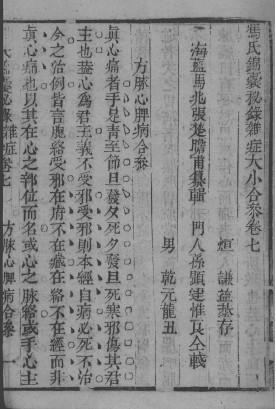 馮氏錦囊秘錄雜症大小合參卷七
海鹽馮兆張楚瞻甫纂輯
門人孫顯達惟良仝較
男
乾元龍丑
方脉心脾病合參
眞心痛者手足青至節旦發夕死夕發旦死寒邪傷其君
主也蓋心為君主義不受邪受邪則本經自病必死不治
今之治例皆言胞絡受邪在腑不在臟在絡不在經而非
眞心痛也以其在心之部位而名或心之脉絡或手心主
方脉心脾病合參
一